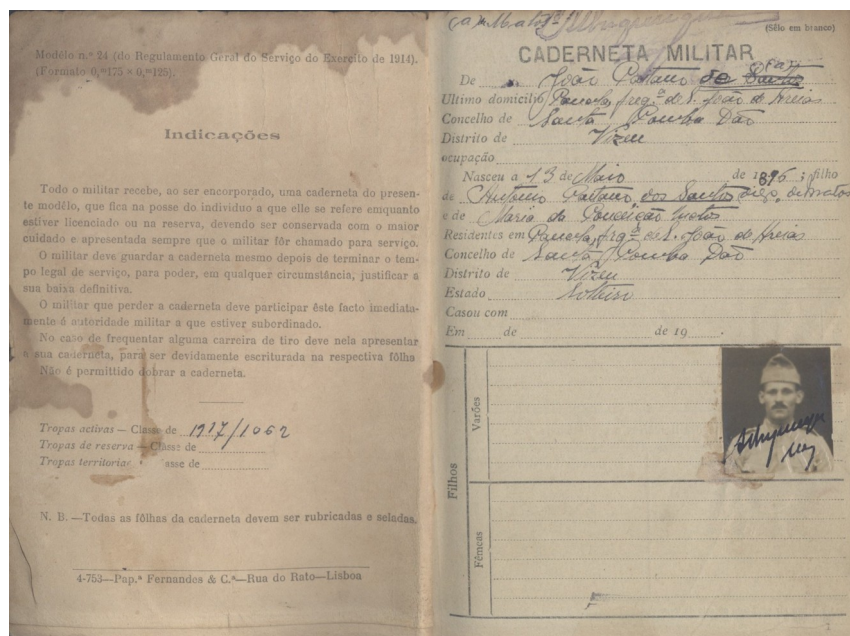 Modêlo n.º 24 (do Regulamento Geral do Serviço do Exercito de 1914).
(Formato 0,ᵐ175 × 0,ᵐ125).
Indicações
Todo o militar recebe, ao ser encorporado, uma caderneta do presen-
te modêlo, que fica na posse do individuo a que elle se refere emquanto
estiver licenciado ou na reserva, devendo ser conservada com o maior
cuidado e apresentada sempre que o militar fôr chamado para serviço.
O militar deve guardar a caderneta mesmo depois de terminar o tem-
po legal de serviço, para poder, em qualquer circumstância, justificar a
sua baixa definitiva.
O militar que perder a caderneta deve participar êste facto imediata-
mente á autoridade militar a que estiver subordinado.
No caso de frequentar alguma carreira de tiro deve nela apresentar
a sua caderneta, para ser devidamente escriturada na respectiva fôlha
Não é permittido dobrar a caderneta.
Tropas activas — Classe de 1917/1062
Tropas de reserva — Classe de
Tropas territoria asse de
N. B. —Todas as fôlhas da caderneta devem ser rubricadas e seladas.
4-753—Pap.ª Fernandes & C.ª—Rua do Rato—Lisboa
(Sêlo em branco)
CADERNETA MILITAR
De João Caetano
Ultimo domicilio freg.ª de S. João de Areias
Concelho de Santa Comba Dão
Distrito de Vizeu
ocupação
Nasceu a 13 de Maio de 1896; filho
de Antonio Caetano dos Santos digo,
e de Maria da Conceição Matos
Residentes em freg.ª de S. João de Areias
Concelho de Santa Comba Dão
Distrito de Vizeu
Estado Solteiro
Casou com
Em de de 19
Filhos
Varões
Fêmeas